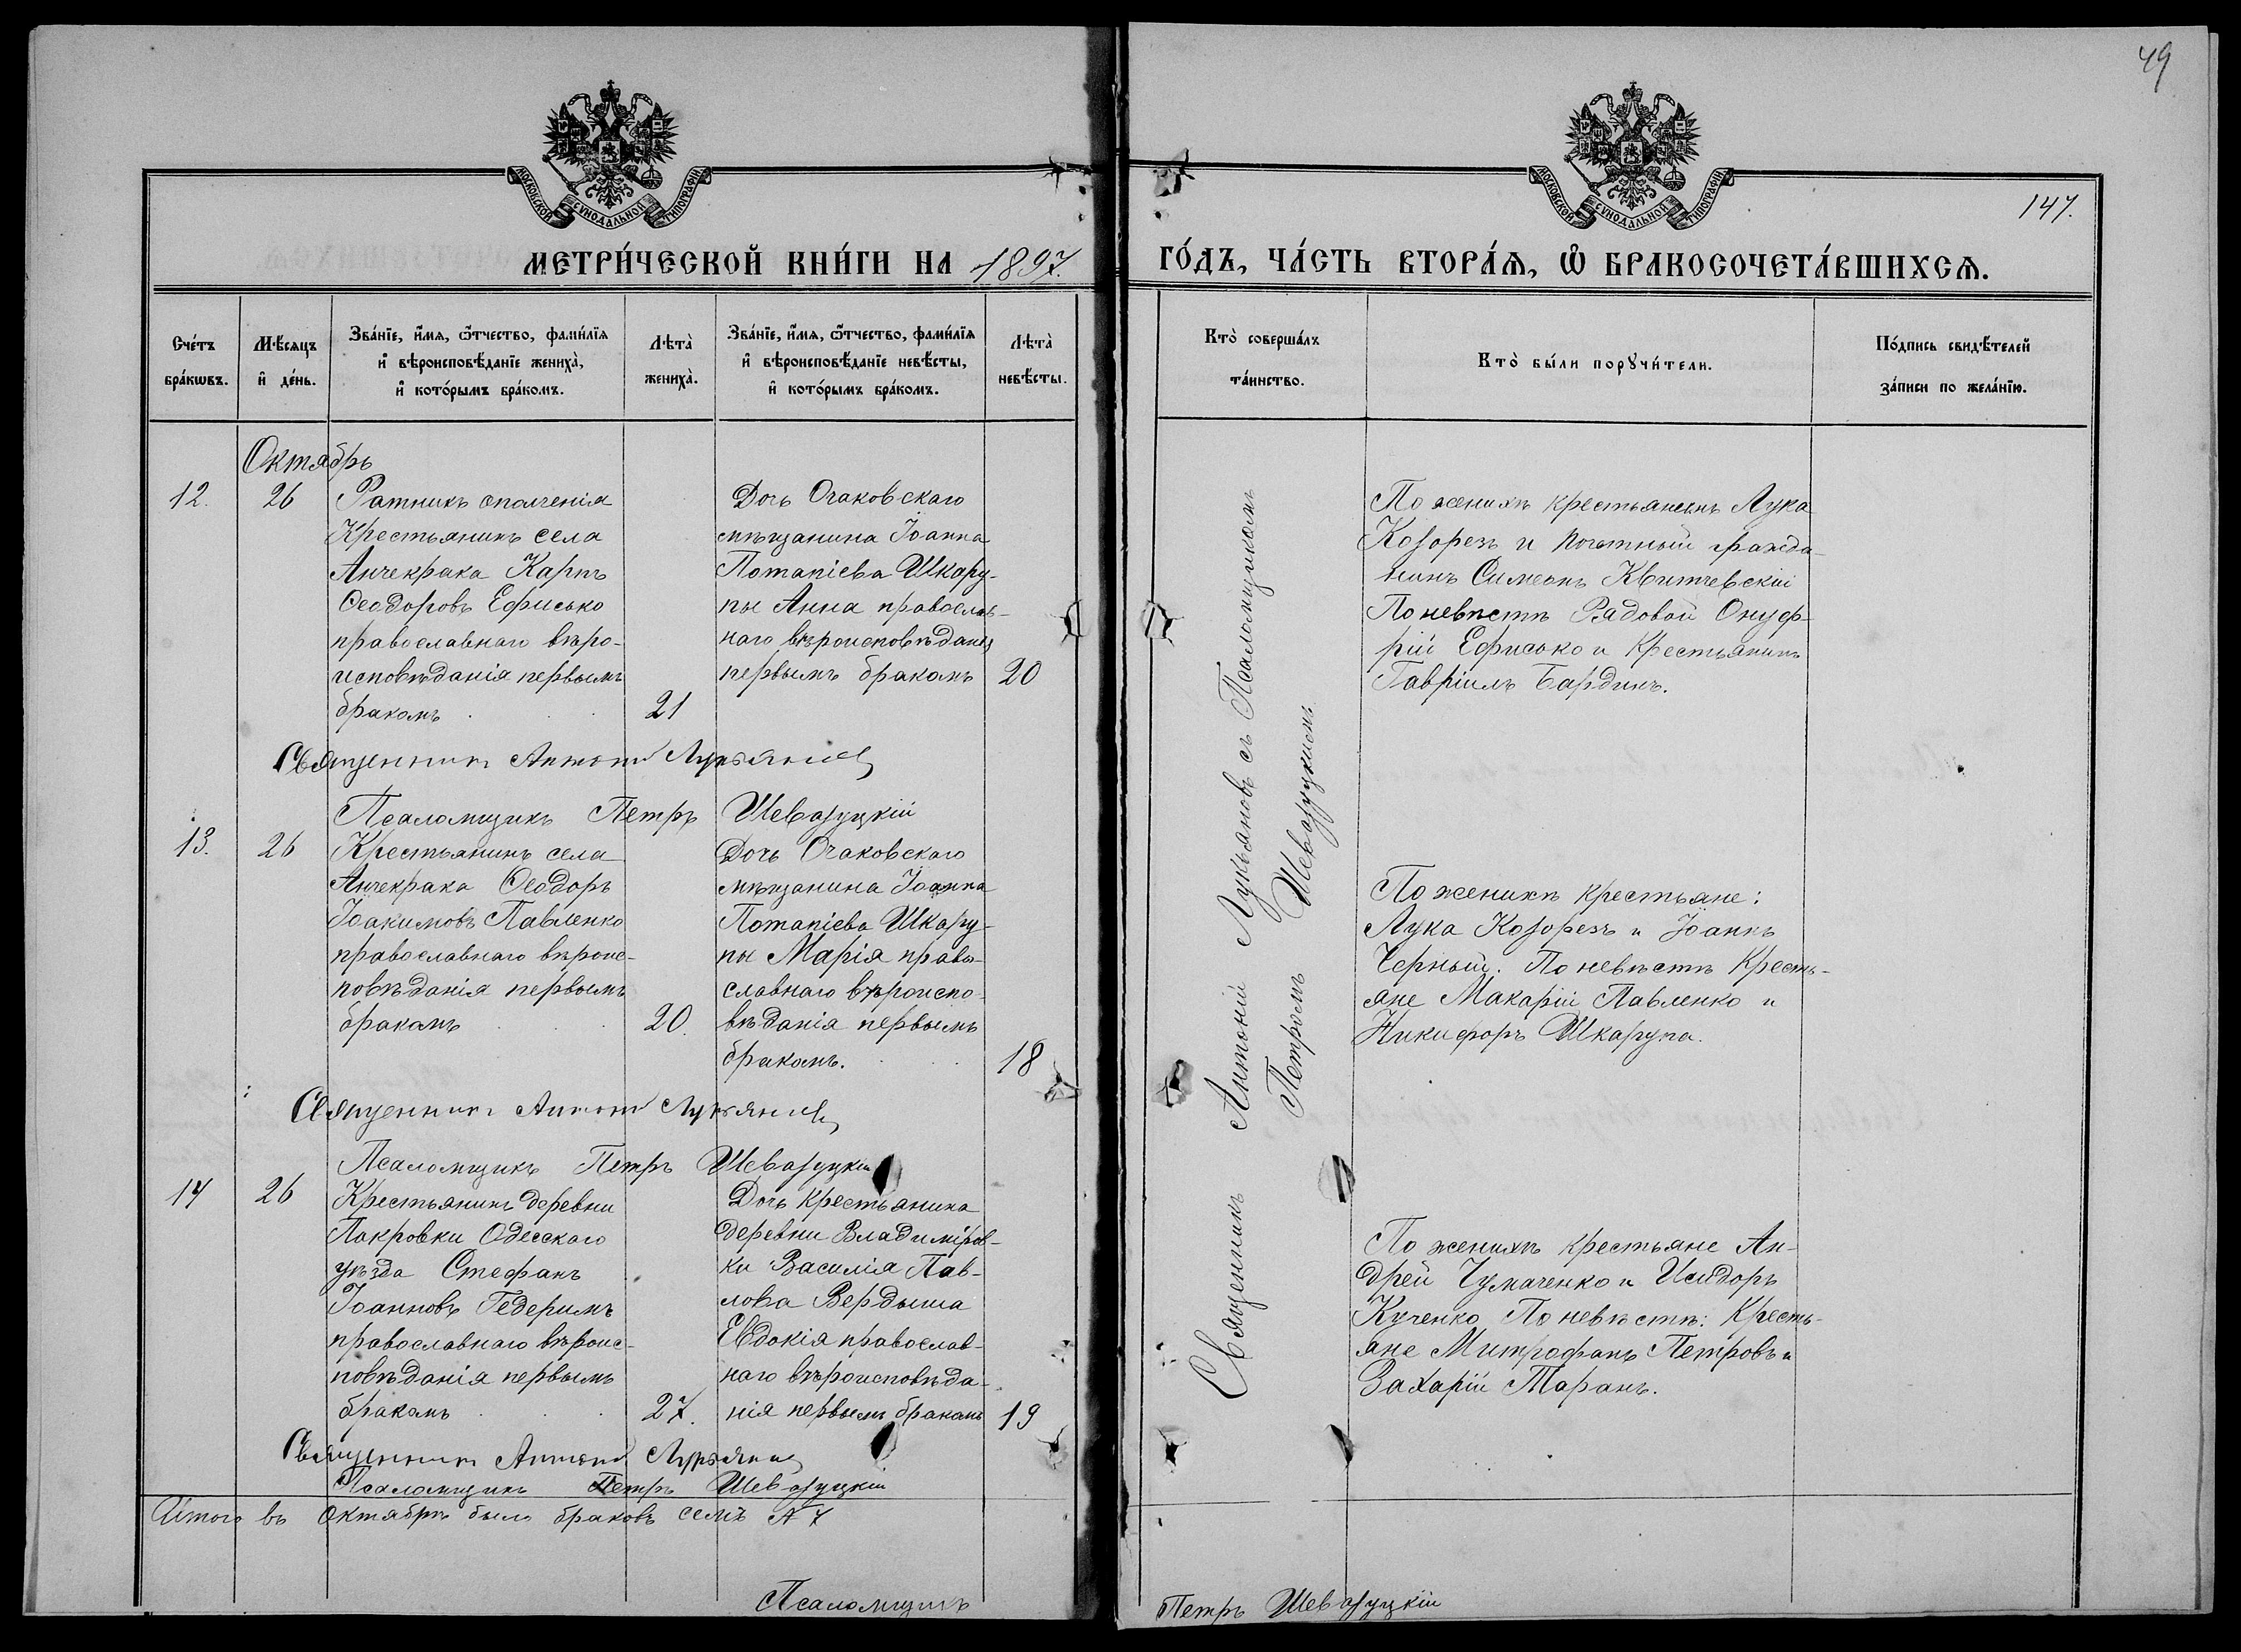 49
МОСКОВСКОЙ СѴНОДАЛЬНОЙ ТИПОГРАФІИ
МОСКОВСКОЙ СѴНОДАЛЬНОЙ ТИПОГРАФІИ
147.
МЕТРИ́ЧЕСКОЙ КНИ́ГИ НА 1897.
ГО́ДЪ, ЧА́СТЬ ВТОРА́Ѧ, Ѽ БРАКОСОЧЕТА́ВШИХСѦ.
Сче́тъ
бра́кѡвъ.
Мѣ́сяцъ
и҆ де́нь.
Зва́нїе, и҆́мѧ, ѻ҆́тчество, фами́лїѧ
и҆ вѣроисповѣ́данїе жениха̀,
и҆ кото́рымъ бра́комъ.
Лѣта̀
жениха̀.
Зва́нїе, и҆́мѧ, ѻ҆́тчество, фами́лїѧ
и҆ вѣроисповѣ́данїе невѣ́сты,
и҆ кото́рымъ бра́комъ.
Лѣта̀
невѣ́сты.
Кто̀ соверша́лъ
та́инство.
Кто̀ бы́ли порꙋчи́тели.
По́дпись свидѣ́телей
за́писи по жела́нїю.
Октябрь
12.
26
Ратникъ ополченія
Крестьянинъ села
Анчекрака Карпъ
Ѳеодоровъ Ефисько
православнаго вѣро-
исповѣданія первымъ
бракомъ
21
Дочь Очаковскаго
мѣщанина Іоанна
Потапіева Шкару-
пы Анна православ-
наго вѣроисповѣданія
первымъ бракомъ
20
Священникъ Антоній Лукьяновъ
Псаломщикъ Петръ Шевазуцкій
По женихѣ крестьянинъ Лука
Козорезъ и почетный гражда-
нинъ Симеонъ Квитчевскій
По невѣстѣ Рядовой Онуф-
рій Ефисько и Крестьянинъ
Гавріилъ Бардинъ.
13.
26
Крестьянинъ села
Анчекрака Ѳеодоръ
Іоакимовъ Павленко
православнаго вѣроис-
повѣданія первымъ
бракомъ
20.
Дочь Очаковскаго
мѣщанина Іоанна
Потапіева Шкару-
пы Марія право-
славнаго вѣроиспо-
вѣданія первымъ
бракомъ.
18
Священникъ Антоній Лукьяновъ
Псаломщикъ Петръ Шевазуцкій
По женихѣ крестьяне:
Лука Козорезъ и Іоаннъ
Черный. По невѣстѣ Кресть-
яне Макарій Павленко и
Никифоръ Шкарупа.
14
26
Крестьянинъ деревни
Покровки Одесскаго
уѣзда Стефанъ
Іоанновъ Гедеримъ
православнаго вѣроис-
повѣданія первымъ
бракомъ
27.
Дочь крестьянина
деревни Владиміров-
ки Василія Пав-
лова Вердыша
Евдокія православ-
наго вѣроисповѣда-
нія первымъ бракомъ
19
Священникъ Антоній Лукьяновъ
Псаломщикъ Петръ Шевазуцкій
По женихѣ крестьяне Ан-
дрей Чумаченко и Исидоръ
Кученко По невѣстѣ: Кресть-
яне Митрофанъ Петровъ и
Захарій Таранъ.
Священникъ Антоній Лукьяновъ съ Псаломщикомъ
Петромъ Шевазуцкимъ
Итого въ Октябрѣ было браковъ семь № 7
Псаломщикъ Петръ Шевазуцкій